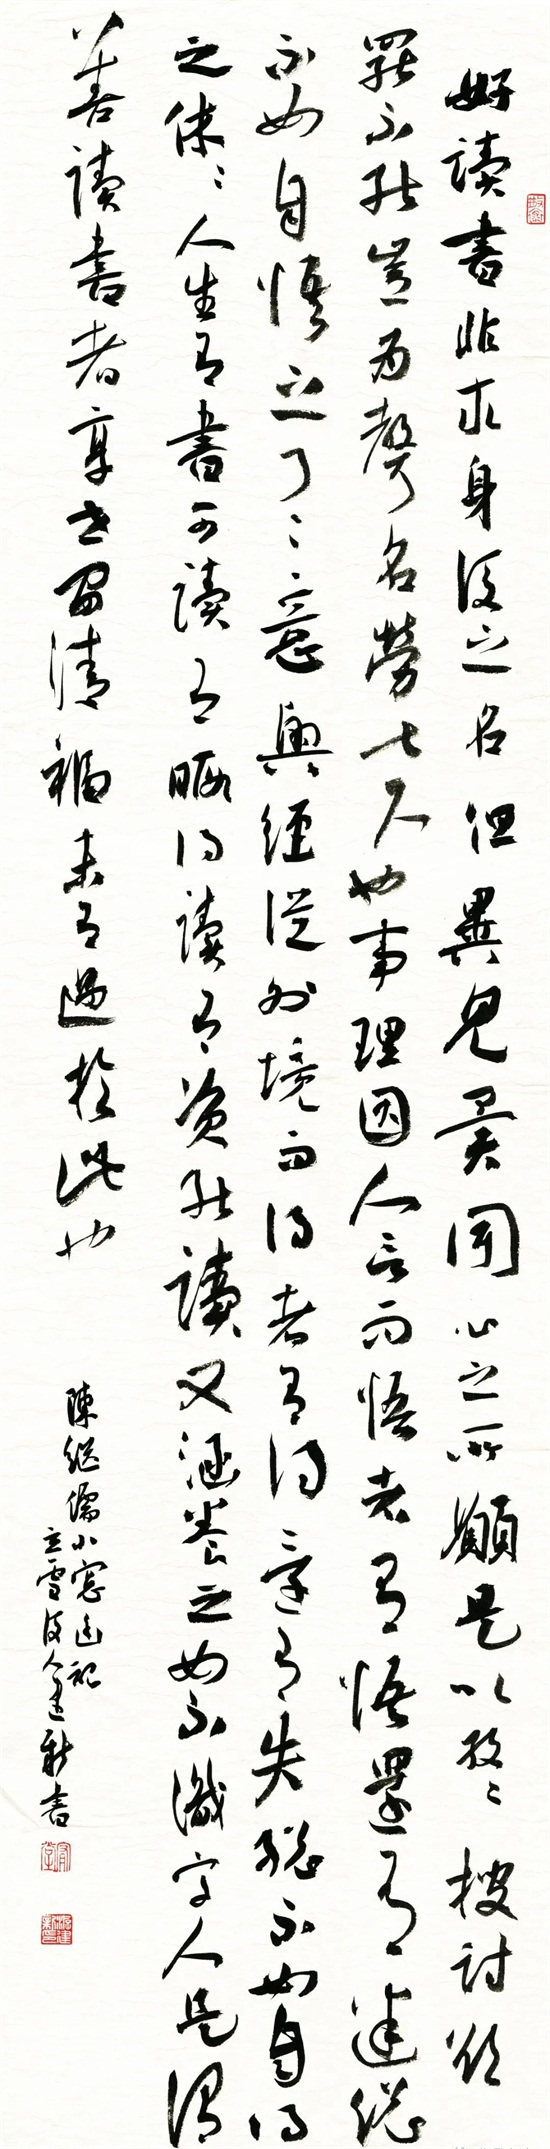 好讀書非求身後之名但異見異聞心之所願是以孜〻搜討欲
罷不能豈為聲名勞七尺也事理因人言而悟者有悟還有迷總
不如自悟之了〻意興經從外境而得者有得還有失總不如自得
之休〻人生有書可讀有暇得讀有資能讀又涵養之如不識字人是謂
善讀書者享世間清福未有過於此也
陳繼儒小窗幽記
立雪後人建新書